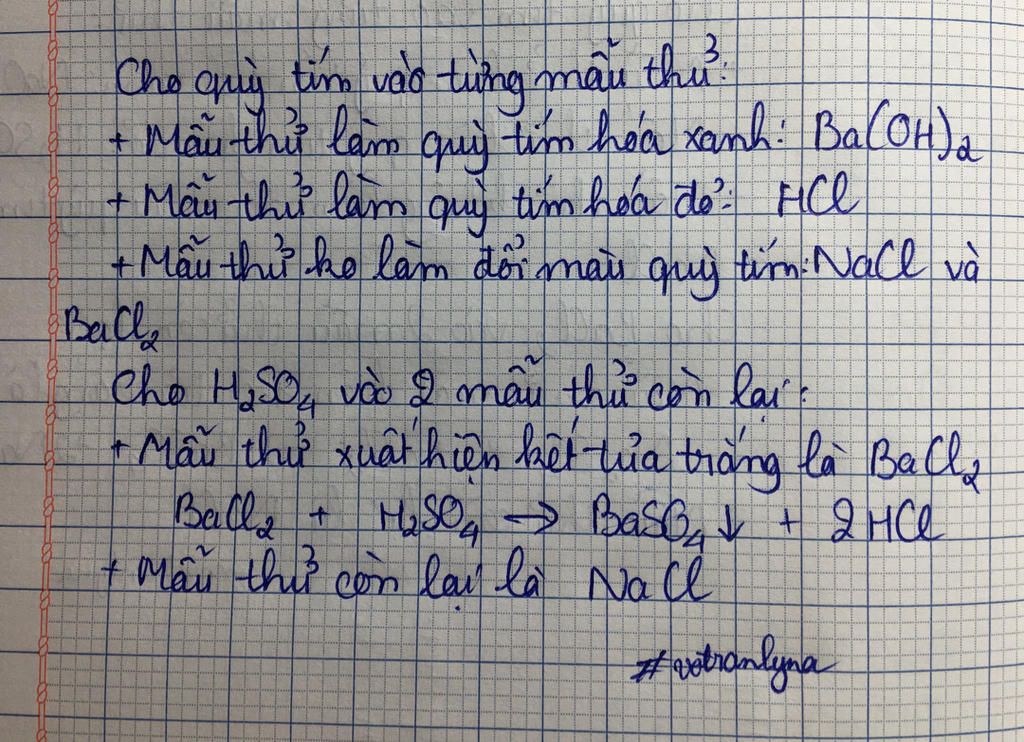 Cho quỳ tím vào từng mẫu thử:
+ Mẫu thử làm quỳ tím hóa xanh: Ba(OH)₂
+ Mẫu thử làm quỳ tím hóa đỏ: HCl
+ Mẫu thử ko làm đổi màu quỳ tím: NaCl và
BaCl₂
Cho H₂SO₄ vào 2 mẫu thử còn lại:
+ Mẫu thử xuất hiện kết tủa trắng là BaCl₂
BaCl₂ + H₂SO₄ → BaSO₄↓ + 2HCl
+ Mẫu thử còn lại là NaCl
#votranlyna